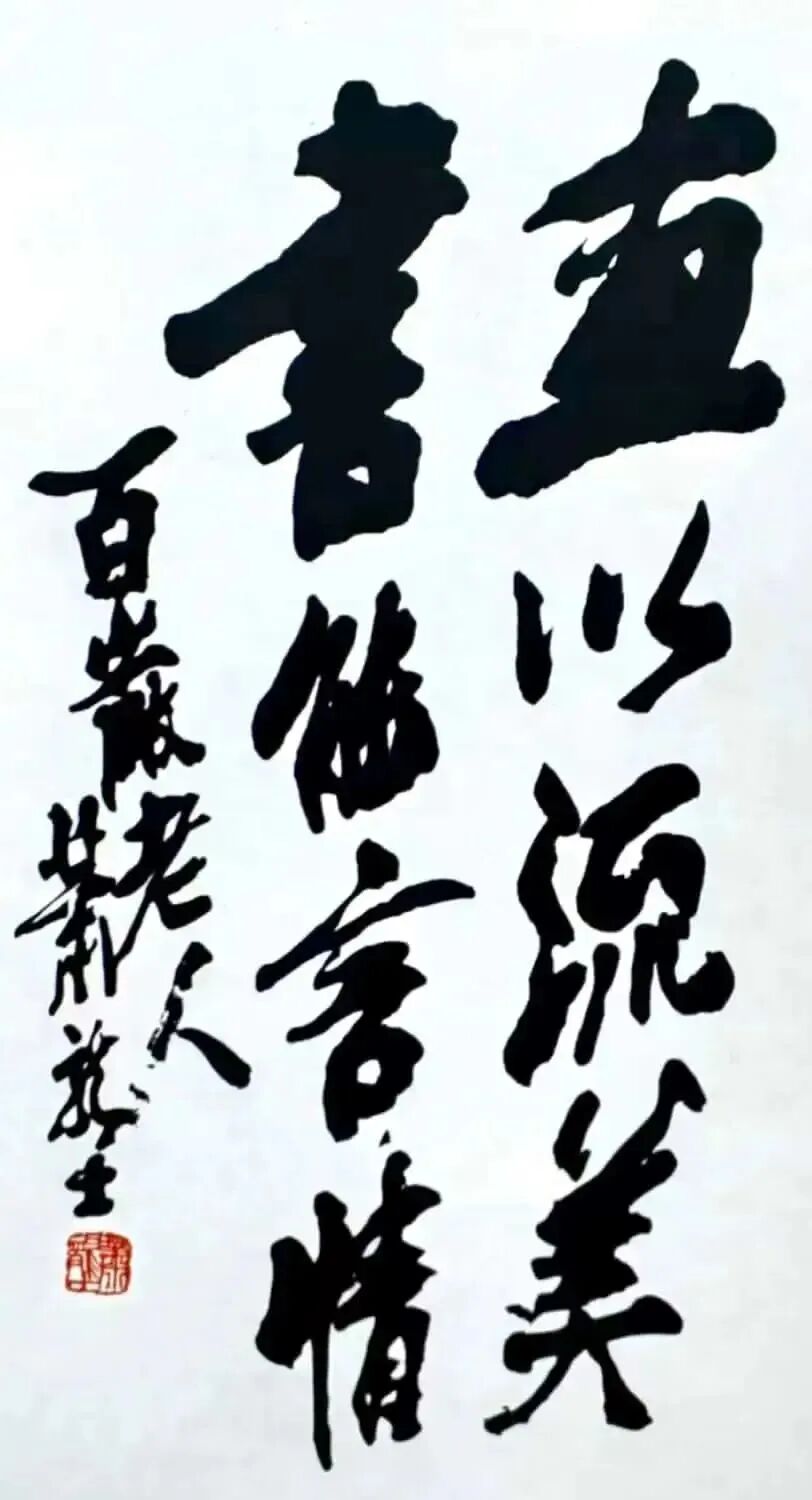 畫以流美
書能言情
百歲老人
蕭龍士